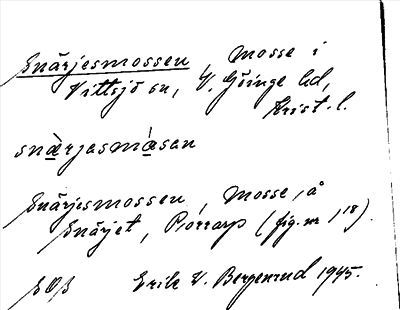 Snärjesmossen, mosse i
Vittsjö sn, V. Göinge hd,
Krist. l.
snärjasmåsan
Snärjesmossen, mosse, å
Snärjet, Porrarp (fig. nr 1,18).
Erik V. Bergenrud 1945.